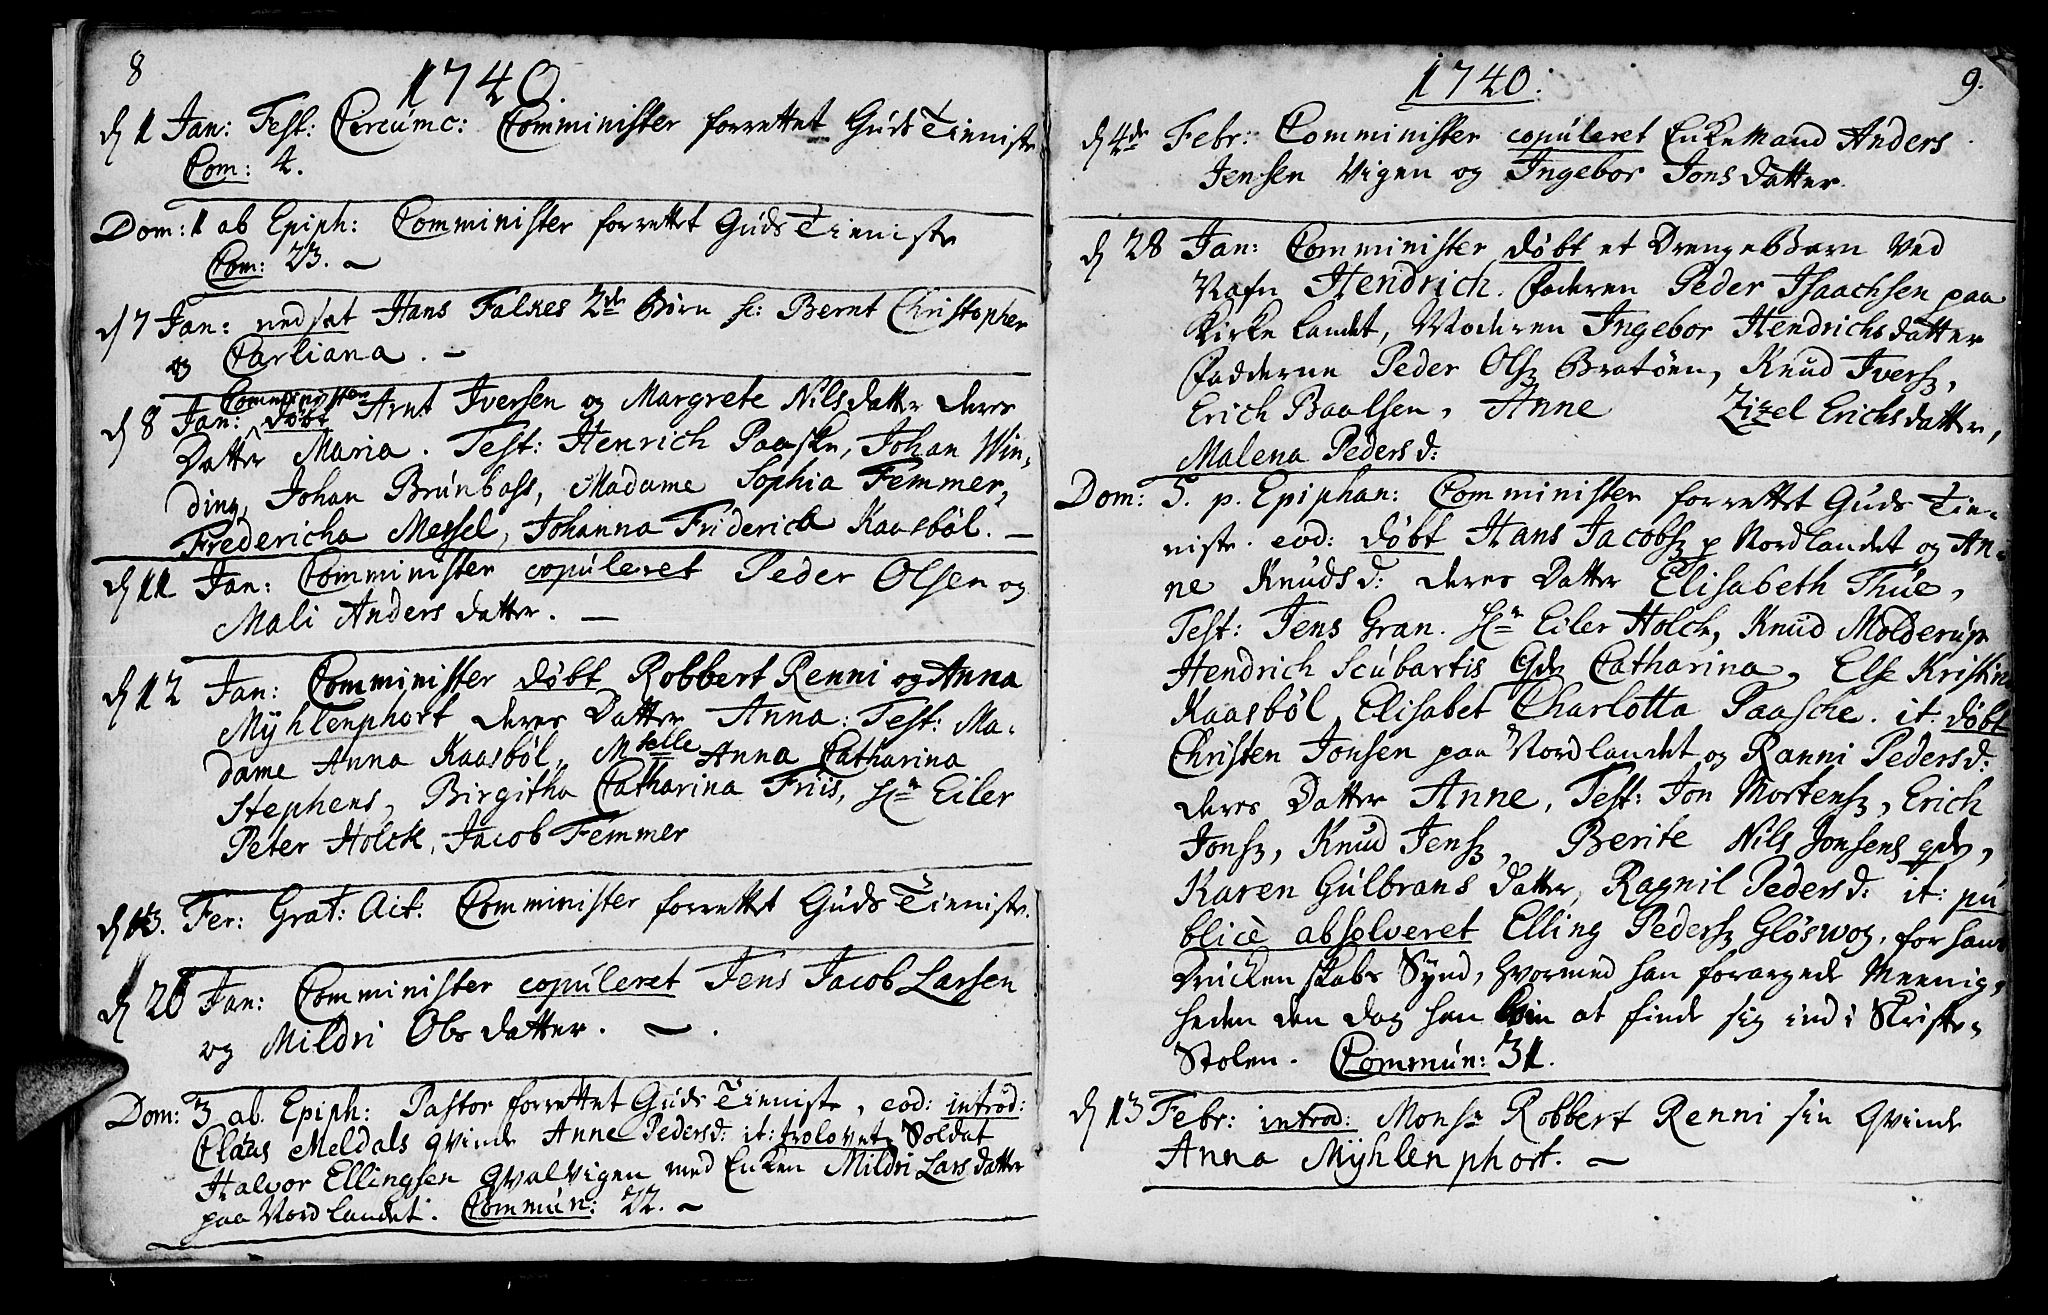 8
1740.
d 1 Jan: Fest: Circumc: Comminister forrettet Guds Tieniste
Com: 4.
Dom: 1 ab Epiph: Comminister forrettet Guds Tieniste
Com: 23. –
d 7 Jan: nedsat Hans Falkes 2de Børn sc: Bernt Christopher
og Carliana. –
Comminister
d 8 Jan: døbt Arnt Iversen og Margrete Nilsdatter deres
Datter Maria. Test: Henrich Paaske, Johan Win-
ding, Johan Brunbass, Madame Sophia Femmer,
Fredericha Messel, Johanna Friderica Kaasbøl. –
d 11 Jan: Comminister copuleret Peder Olsen og
Mali Anders datter. –
d 12 Jan: Comminister døbt Robbert Renni og Anna
Mÿhlenphort deres Datter Anna: Test: Ma-
dame Anna Kaasbøl, Mselle Anna Catharina
Stephens, Birgitha Catharina Friis, Hr Eiler
Peter Holck, Jacob Femmer
d 13. Fer: Grat: Act: Comminister forrettet Guds Tieniste.
d 26 Jan: Comminister copuleret Jens Jacob Larsen
og Mildri Obs datter. –.
Dom: 3 ab. Epiph: Pastor forrettet Guds Tieniste, eod: introd:
Claus Meldals qvinde Anne Pedersd: it: trolovet Soldat
Halvor Ellingsen Qvalvigen med Enken Mildri Larsdatter
paa Nordlandet. Commun: 22. –
1740.
9.
d 4de Febr: Comminister copuleret Enkemand Anders
Jensen Vigen og Ingebor Jonsdatter.
d 28 Jan: Comminister døbt et Drengebarn ved
Nafn Hendrich. Faderen Peder Isaachsen paa
Kirkelandet, Moderen Ingebor Hendrichsdatter
Fadderne Peder Ols: Bratøen, Knud Ivers:,
Erich Baalsen, Anne Zizel Erichsdatter,
Malena Pedersd:
Dom: 5. p. Epiphan: Comminister forrettet Guds Tie-
niste. eod: døbt Hans Jacobs: p Nordlandet og An-
ne Knudsd: deres Datter Elisabeth Thue,
Test: Jens Gran. Hr Eiler Holck, Knud Molderup
Hendrich Scubartis Qde Catharina, Else Kristina
Kaasbøl, Elisabet Charlotta Paasche. it: døbt
Christen Jonsen paa Nordlandet og Ranni Pedersd:
deres Datter Anne, Test: Jon Mortens:, Erich
Jons:, Knud Jens:, Berite Nils Jonsens qde,
Karen Gulbrans datter, Ragnil Pedersd: it: pu-
blicè absolveret Elling Peders: Gløswog, for hans
Druckenskabs Synd, hvormed han forargede Meenig-
heden den dag han var at finde sig ind i Skrifte-
Stolen. Commun: 31.
d 13 Febr: introd: Monsr Robbert Renni sin Qvinde
Anna Mÿhlenphort. –